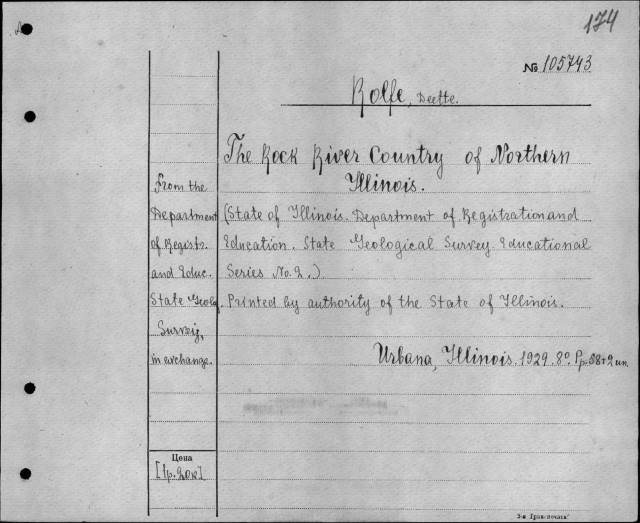 174
№ 105743
Rolfe, Deette.
The Rock River Country of Northern
Illinois.
From the
Department
of Registr.
and Educ.
State Geolog.
Survey,
in exchange.
(State of Illinois. Department of Registration and
Education. State Geological Survey. Educational
Series No. 2.)
Printed by authority of the State of Illinois.
Urbana, Illinois. 1929. 8°. Pp. 58+2 un.
Цена
[1р. 20к]